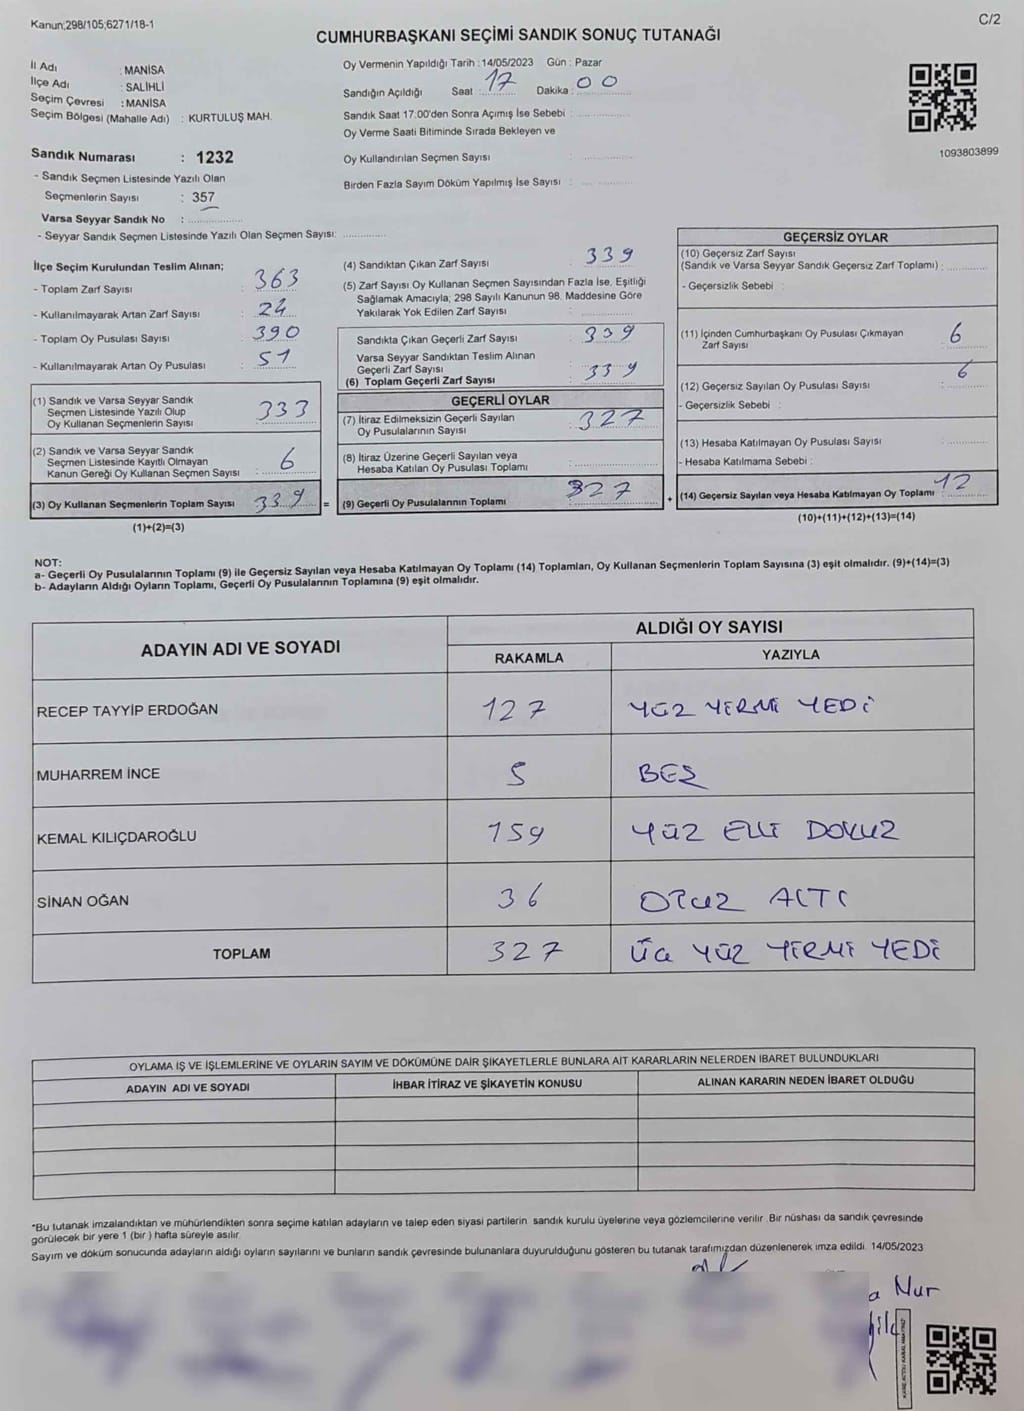 Kanun;298/105;6271/18-1
C/2
CUMHURBAŞKANI SEÇİMİ SANDIK SONUÇ TUTANAĞI
İl Adı : MANİSA
İlçe Adı : SALİHLİ
Seçim Çevresi : MANİSA
Seçim Bölgesi (Mahalle Adı) : KURTULUŞ MAH.
Sandık Numarası : 1232
- Sandık Seçmen Listesinde Yazılı Olan
Seçmenlerin Sayısı : 357
Varsa Seyyar Sandık No :
- Seyyar Sandık Seçmen Listesinde Yazılı Olan Seçmen Sayısı:
Oy Vermenin Yapıldığı Tarih :14/05/2023 Gün : Pazar
Sandığın Açıldığı Saat : 17 Dakika : 00
Sandık Saat 17:00'den Sonra Açımış İse Sebebi :
Oy Verme Saati Bitiminde Sırada Bekleyen ve
Oy Kullandırılan Seçmen Sayısı :
Birden Fazla Sayım Döküm Yapılmış İse Sayısı :
1093803899
İlçe Seçim Kurulundan Teslim Alınan;
- Toplam Zarf Sayısı : 363
- Kullanılmayarak Artan Zarf Sayısı : 24
- Toplam Oy Pusulası Sayısı : 390
- Kullanılmayarak Artan Oy Pusulası : 51
(1) Sandık ve Varsa Seyyar Sandık
Seçmen Listesinde Yazılı Olup
Oy Kullanan Seçmenlerin Sayısı : 333
(2) Sandık ve Varsa Seyyar Sandık
Seçmen Listesinde Kayıtlı Olmayan
Kanun Gereği Oy Kullanan Seçmen Sayısı : 6
(3) Oy Kullanan Seçmenlerin Toplam Sayısı : 339 =
(1)+(2)=(3)
(4) Sandıktan Çıkan Zarf Sayısı : 339
(5) Zarf Sayısı Oy Kullanan Seçmen Sayısından Fazla İse, Eşitliği
Sağlamak Amacıyla; 298 Sayılı Kanunun 98. Maddesine Göre
Yakılarak Yok Edilen Zarf Sayısı :
Sandıkta Çıkan Geçerli Zarf Sayısı : 339
Varsa Seyyar Sandıktan Teslim Alınan
Geçerli Zarf Sayısı
(6) Toplam Geçerli Zarf Sayısı : 339
GEÇERLİ OYLAR
(7) İtiraz Edilmeksizin Geçerli Sayılan
Oy Pusulalarının Sayısı : 327
(8) İtiraz Üzerine Geçerli Sayılan veya
Hesaba Katılan Oy Pusulası Toplamı :
(9) Geçerli Oy Pusulalarının Toplamı : 327 +
GEÇERSİZ OYLAR
(10) Geçersiz Zarf Sayısı
(Sandık ve Varsa Seyyar Sandık Geçersiz Zarf Toplamı) :
- Geçersizlik Sebebi :
(11) İçinden Cumhurbaşkanı Oy Pusulası Çıkmayan
Zarf Sayısı : 6
(12) Geçersiz Sayılan Oy Pusulası Sayısı : 6
- Geçersizlik Sebebi :
(13) Hesaba Katılmayan Oy Pusulası Sayısı :
- Hesaba Katılmama Sebebi :
(14) Geçersiz Sayılan veya Hesaba Katılmayan Oy Toplamı : 12
(10)+(11)+(12)+(13)=(14)
NOT:
a- Geçerli Oy Pusulalarının Toplamı (9) ile Geçersiz Sayılan veya Hesaba Katılmayan Oy Toplamı (14) Toplamları, Oy Kullanan Seçmenlerin Toplam Sayısına (3) eşit olmalıdır. (9)+(14)=(3)
b- Adayların Aldığı Oyların Toplamı, Geçerli Oy Pusulalarının Toplamına (9) eşit olmalıdır.
ADAYIN ADI VE SOYADI ALDIĞI OY SAYISI
RAKAMLA YAZIYLA
RECEP TAYYİP ERDOĞAN 127 YÜZ YİRMİ YEDİ
MUHARREM İNCE 5 BEŞ
KEMAL KILIÇDAROĞLU 159 YÜZ ELLİ DOKUZ
SİNAN OĞAN 36 OTUZ ALTI
TOPLAM 327 ÜÇ YÜZ YİRMİ YEDİ
OYLAMA İŞ VE İŞLEMLERİNE VE OYLARIN SAYIM VE DÖKÜMÜNE DAİR ŞİKAYETLERLE BUNLARA AİT KARARLARIN NELERDEN İBARET BULUNDUKLARI
ADAYIN ADI VE SOYADI İHBAR İTİRAZ VE ŞİKAYETİN KONUSU ALINAN KARARIN NEDEN İBARET OLDUĞU
*Bu tutanak imzalandıktan ve mühürlendikten sonra seçime katılan adayların ve talep eden siyasi partilerin sandık kurulu üyelerine veya gözlemcilerine verilir. Bir nüshası da sandık çevresinde
görülecek bir yere 1 (bir ) hafta süreyle asılır.
Sayım ve döküm sonucunda adayların aldığı oyların sayılarını ve bunların sandık çevresinde bulunanlara duyurulduğunu gösteren bu tutanak tarafımızdan düzenlenerek imza edildi. 14/05/2023
a Nur